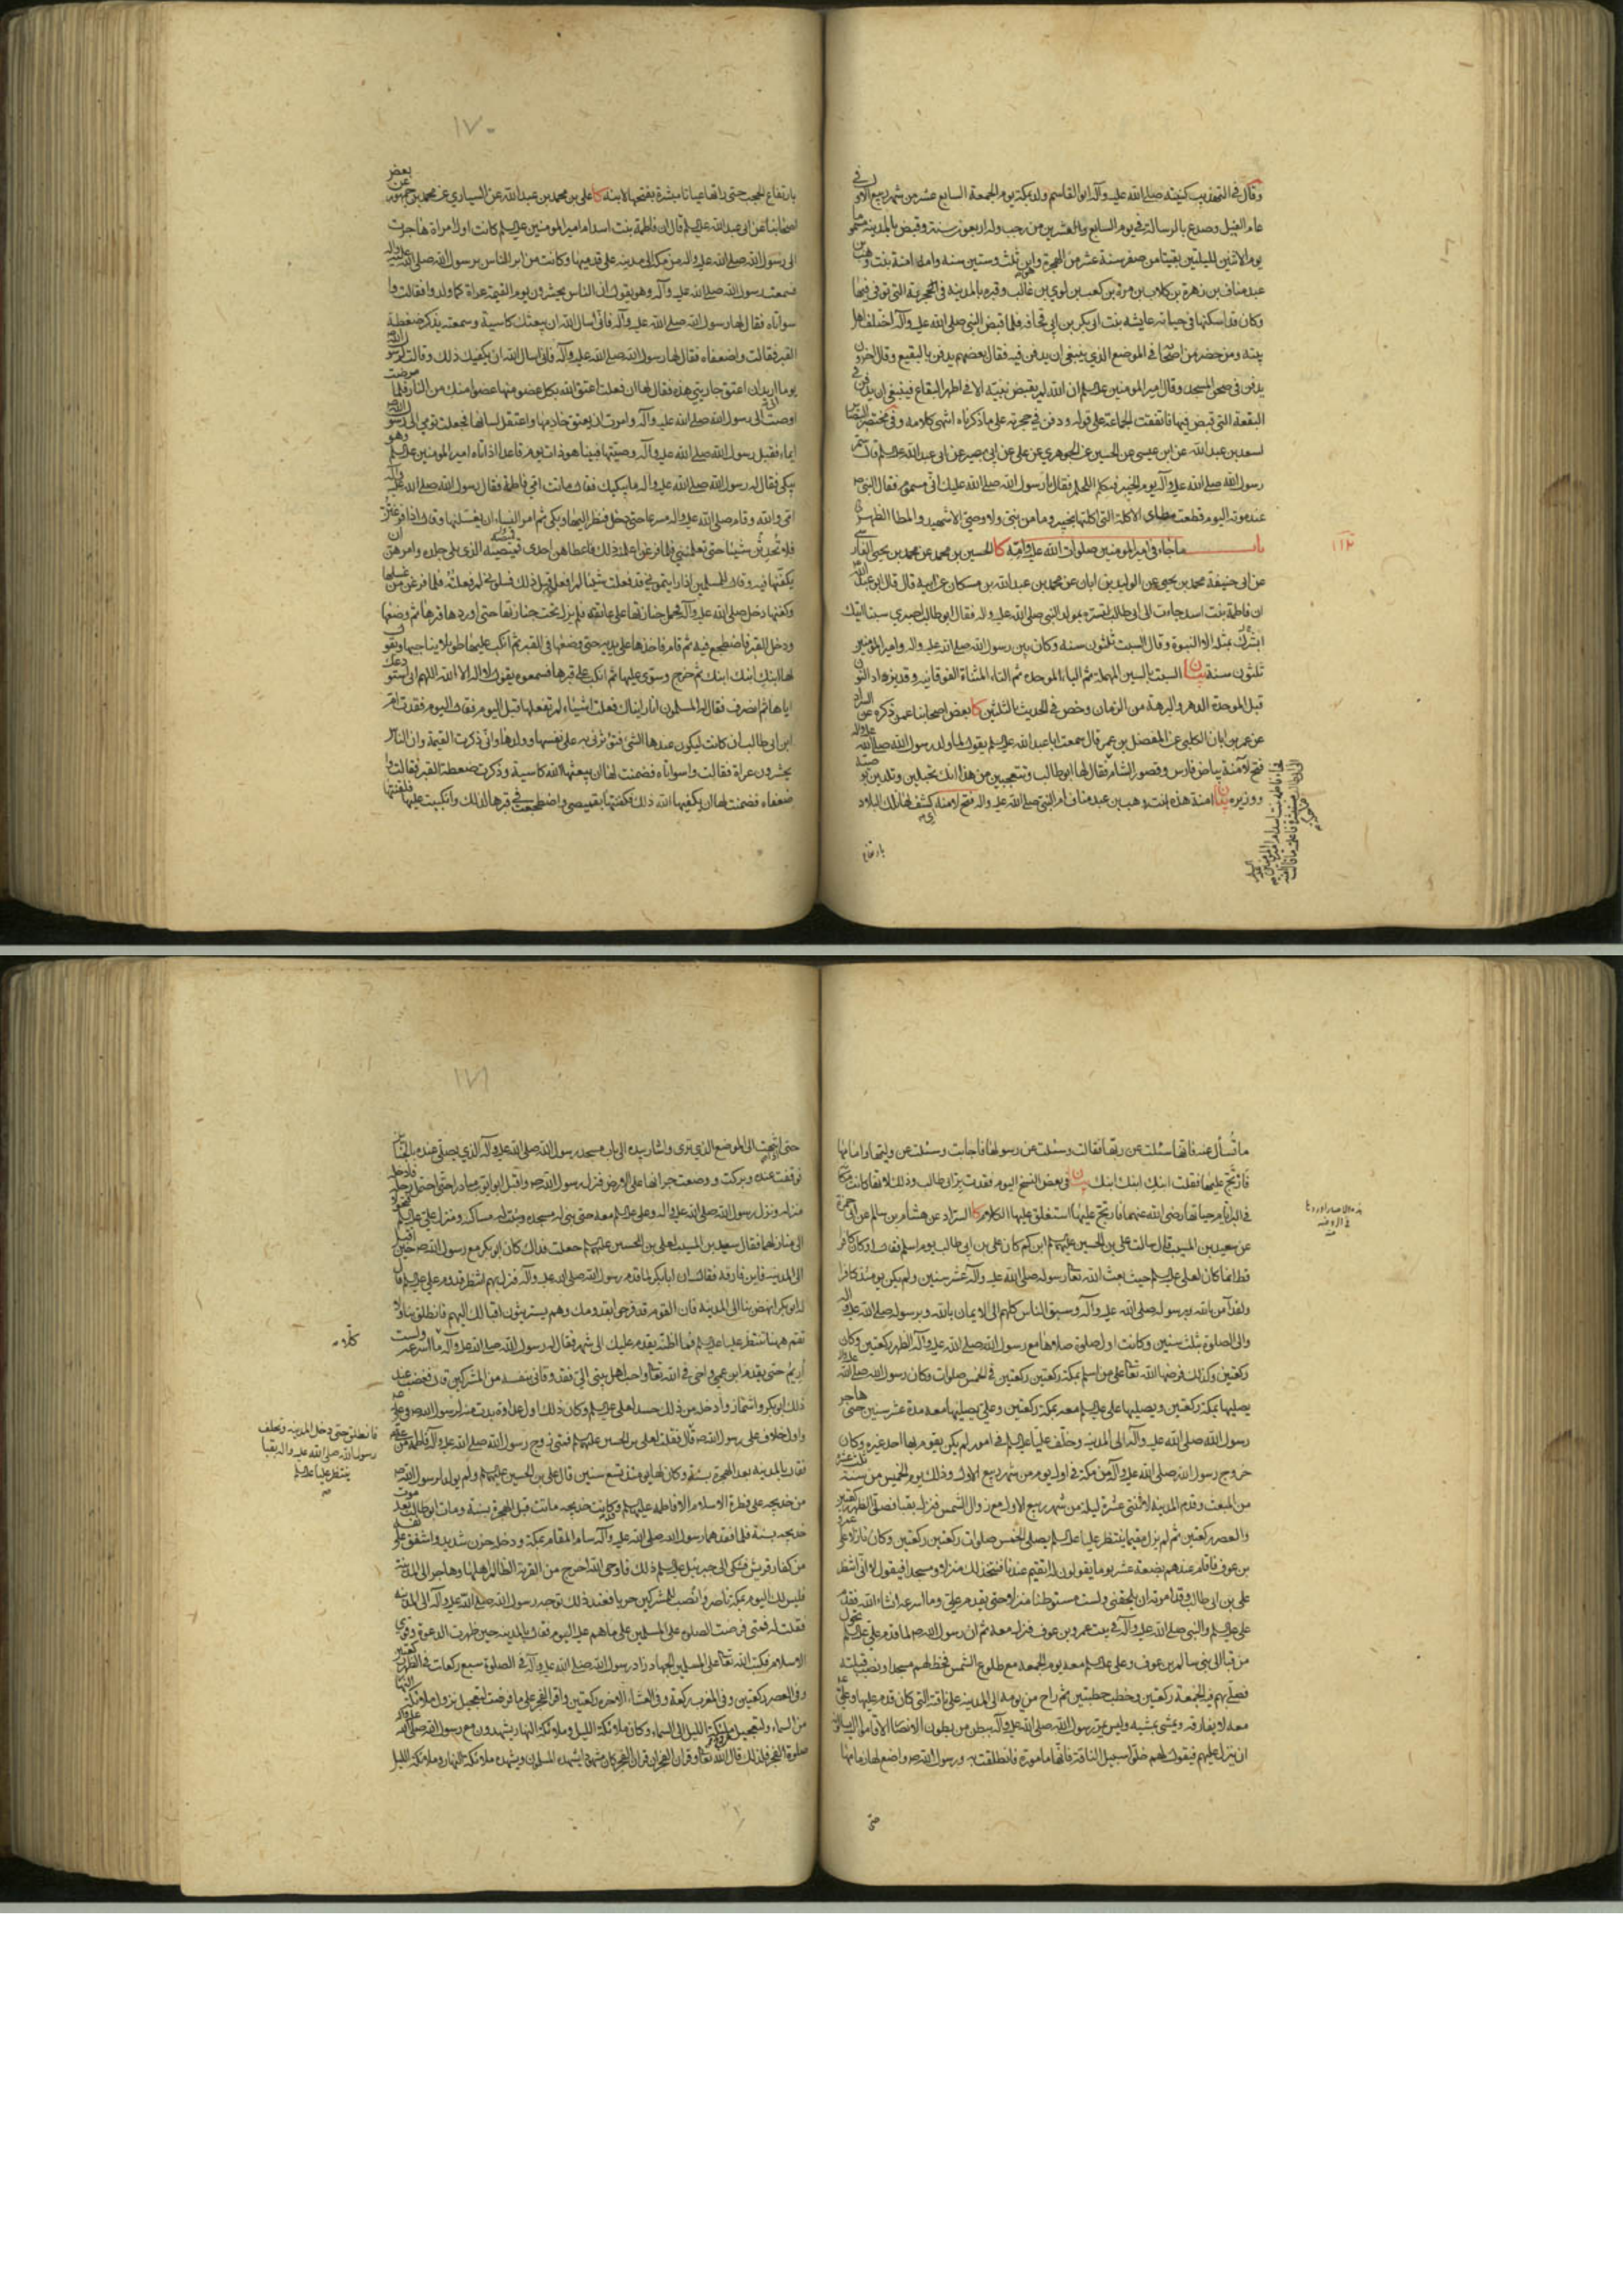 وقال في التهذيب كنيته صلى الله عليه وآله ابو القاسم ولد بمكة يوم الجمعة السابع عشر من شهر ربيع الاول في
عام الفيل وصدع بالرسالة في يوم السابع والعشرين من رجب وله اربعون سنة وقبض بالمدينة مسموما
يوم الاثنين لليلتين بقيتا من صفر سنة عشر من الهجرة وهو ابن ثلث وستين سنة وامه امنة بنت وهب بن
عبد مناف بن زهرة بن كلاب بن مرة بن كعب بن لوي بن غالب وقبره بالمدينة في حجرته التي توفي فيها
وكان قد اسكنها في حياته عايشة بنت ابي بكر بن ابي قحافه فلما قبض النبي صلى الله عليه وآله اختلف اهل
بيته ومن حضر من اصحابه في الموضع الذي ينبغي ان يدفن فيه فقال بعضهم يدفن بالبقيع وقال اخرون
يدفن في صحن المسجد وقال امير المومنين عليه السلم ان الله لم يقبض نبيه الا في اطهر البقاع فينبغي ان يدفن في
البقعة التي قبض فيها فاتفقت الجماعة على قوله ودفن في حجرته على ما ذكرناه انتهى كلامه وفي مختصر البصائر
لسعد بن عبد الله عن ابن عيسى عن الحسين عن الجوهري عن علي عن ابي بصير عن ابي عبد الله عليه السلم قال سم
رسول الله صلى الله عليه وآله يوم الخيبر فتكلم اللحم فقال يا رسول الله صلى الله عليك اني مسموم فقال النبي ص
عند موته اليوم قطعت مطاي الاكلة التي اكلتها بخيبر وما من نبي ولا وصي الا شهيد والمطا الظهر
باب ما جاء في امير المومنين صلوات الله عليه وامه كا الحسين بن محمد عن محمد بن يحيى الفارسي
عن ابي حنيفة محمد بن يحيى عن الوليد بن ابان عن محمد بن عبد الله بن مسكان عن ابيه قال قال ابو عبد الله
ان فاطمة بنت اسد جاءت الى ابي طالب لتبشره بمولد النبي صلى الله عليه واله فقال ابو طالب اصبري سبتا اتيك
ابشرك بمثله الا النبوة وقال السبت ثلثون سنه وكان بين رسول الله صلى الله عليه واله وامير المومنين
ثلثون سنة بيان السبت بالسين المهملة ثم الباء الموحدة ثم التاء المثناة الفوقانيه وقد يزاد النون
قبل الموحدة الدهر والبرهة من الزمان وخص في الحديث بالثلثين كا بعض اصحابنا عمن ذكره عن السراد
عن عمر بن ابان الكلبي عن المفضل بن عمر قال سمعت ابا عبد الله عليه السلم يقول لما ولد رسول الله صلى الله عليه واله
فتح لامنة بياض فارس وقصور الشام فقال لها ابو طالب وتتعجبين من هذا انك تحبلين وتلدين بوصيه
ووزيره بيان امنة هذه بنت وهب بن عبد مناف ام النبي صلى الله عليه واله فتح لامنة اي كشف لها تلك البلاد
بارتفاع
١١٢
١٧٠
بارتفاع الحجب حتى راتها عيانا مبشرة بفتحها لابنها كا علي بن محمد بن عبد الله عن السياري عن محمد بن جمهور عن بعض
اصحابنا عن ابي عبد الله عليه السلم قال ان فاطمة بنت اسد ام امير المومنين عليه السلم كانت اول امراة هاجرت
الى رسول الله صلى الله عليه واله من مكة الى مدينه على قدميها وكانت من ابر الناس برسول الله صلى الله عليه واله
فسمعت رسول الله صلى الله عليه وآله وهو يقول ان الناس يحشرون يوم القيمة عراة كما ولدوا فقالت وا
سوأتاه فقال لها رسول الله صلى الله عليه وآله فاني اسال الله ان يبعثك كاسية وسمعته يذكر ضغطة
القبر فقالت واضعفاه فقال لها رسول الله صلى الله عليه وآله فاني اسال الله ان يكفيك ذلك وقالت لرسول الله
يوما اريد ان اعتق جاريتي هذه فقال لها ان فعلت اعتق الله بكل عضو منها عضوا منك من النار فلما مرضت
اوصت الى رسول الله صلى الله عليه وآله وامرت ان يعتق خادمها واعتقل لسانها فجعلت تومي الى رسول الله
ايماء فقبل رسول الله صلى الله عليه وآله وصيتها فبينا هو ذات يوم قاعد اذ اتاه امير المومنين عليه السلم وهو
يبكي فقال له رسول الله صلى الله عليه واله ما يبكيك فقال ماتت امي فاطمة فقال رسول الله صلى الله عليه وآله
امي والله وقام صلى الله عليه واله مسرعا حتى دخل فنظر اليها وبكى ثم امر النساء ان يغسلنها وقال اذا فرغتن
فلا تحدثن شيئا حتى تعلمنني فلما فرغن اعلمنه ذلك فاعطاهن احدى قميصيه الذي يلي جلده وامرهن ان
يكفنها فيه وقال للمسلمين اذا رايتموني قد فعلت شيئا لم افعل قبل ذلك فسلوني لم فعلته فلما فرغن من غسلها
وكفنها دخل صلى الله عليه وآله فحمل جنازتها على عاتقه فلم يزل تحت جنازتها حتى اوردها قبرها ثم وضعها
ودخل القبر فاضطجع فيه ثم قام فاخذها على يديه حتى وضعها في القبر ثم انكب عليها طويلا يناجيها ويقول
لها ابنك ابنك ابنك ثم خرج وسوى عليها ثم انكب على قبرها فسمعوه يقول لا اله الا الله اللهم اني استودعك
اياها ثم انصرف فقال له المسلمون انا رايناك فعلت اشياء لم تفعلها قبل اليوم فقال اليوم فقدت بر
ابن ابي طالب ان كانت ليكون عندها الشئ فتوثرني به على نفسها وولدها واني ذكرت القيمة وان الناس
يحشرون عراة فقالت واسواتاه فضمنت لها ان يبعثها الله كاسية وذكرت ضغطة القبر فقالت وا
ضعفاه فضمنت لها ان يكفيها الله ذلك فكفنتها بقميصي واضطجعت في قبرها لذلك وانكببت عليها فلقنتها
ما تسأل عنه فانها سئلت عن ربها فقالت وسئلت عن رسولها فاجابت وسئلت عن وليها وامامها
فارتج عليها فقلت ابنك ابنك ابنك بيان في بعض النسخ اليوم فقدت بر ابي طالب وذلك لانها كانت
في الدنيا مرجيا رضي الله عنهما فارتج عليها استغلق عليها الكلام كا السراد عن هشام بن سالم عن ابي حمزة
عن سعيد بن المسيب قال سالت علي بن الحسين عليهما السلم ابن كم كان علي بن ابي طالب يوم اسلم فقال اوكان كافرا
قط انما كان لعلي عليه السلم حيث بعث الله تعالى رسوله صلى الله عليه وآله عشر سنين ولم يكن يومئذ كافرا
ولقد آمن بالله وبرسوله صلى الله عليه وآله وسبق الناس كلهم الى الايمان بالله وبرسوله صلى الله عليه واله
والى الصلوة بثلث سنين وكانت اول صلوة صلاها مع رسول الله صلى الله عليه وآله الظهر ركعتين وكان
ركعتين وكذلك فرضها الله تعالى على من اسلم بمكة ركعتين ركعتين في الخمس صلوات وكان رسول الله صلى الله عليه واله
يصليها بمكة ركعتين ويصليها علي عليه السلم معه بمكة ركعتين وعلي يصليها معه مدة عشر سنين حتى هاجر
رسول الله صلى الله عليه وآله الى المدينه وخلف عليا عليه السلم في امور لم يكن يقوم بها احد غيره وكان
خروج رسول الله صلى الله عليه وآله من مكة في اول يوم من شهر ربيع الاول وذلك يوم الخميس من سنة ثلث عشرة
من المبعث وقدم المدينة لاثنتي عشرة ليلة من شهر ربيع الاول مع زوال الشمس فنزل بقبا فصلى الظهر ركعتين
والعصر ركعتين ثم لم يزل مقيما ينتظر عليا عليه السلم يصلي الخمس صلوات ركعتين ركعتين وكان نازلا على عمرو
بن عوف فاقام عندهم بضعة عشر يوما يقولون له اتقيم عندنا فنتخذ لك منزلا ومسجدا فيقول لا اني انتظر
علي بن ابي طالب وقد امرته ان يلحقني ولست مستوطنا منزلا حتى يقدم علي وما اسرعه انشاء الله فقدم
علي عليه السلم والنبي صلى الله عليه وآله في بيت عمرو بن عوف فنزل معه ثم ان رسول الله ص لما قدم علي عليه السلم تحول
من قبا الى بني سالم بن عوف وعلي عليه السلم معه يوم الجمعه مع طلوع الشمس فخط لهم مسجدا ونصب قبلته
فصلى بهم فيه الجمعة ركعتين وخطب خطبتين ثم راح من يومه الى المدينه على ناقته التي كان قدم عليها وعلي
معه لا يفارقه ويمشي بمشيه وليس يمر رسول الله صلى الله عليه وآله ببطن من بطون الانصار الا قاموا اليه يسالونه
ان ينزل عليهم فيقول لهم خلوا سبيل الناقة فانها مامورة فانطلقت به ورسول الله ص واضع لها زمامها
حتى
١٧١
حتى انتهت الى الموضع الذي ترى واشار بيده الى باب مسجد رسول الله صلى الله عليه وآله الذي يصلى عنده بالجنائز
فوقفت عنده وبركت ووضعت جرانها على الارض فنزل رسول الله ص واقبل ابو ايوب مبادرا حتى احتمل رحله فادخله
منزله ونزل رسول الله صلى الله عليه واله وعلي عليه السلم معه حتى بني له مسجده وبنيت له مساكنه ومنزل علي عليه السلم فتحولا
الى منازلهما فقال سعيد بن المسيب لعلي بن الحسين عليهما السلم جعلت فداك كان ابو بكر مع رسول الله ص حين اقبل
الى المدينة فاين فارقه فقال ان ابا بكر لما قدم رسول الله صلى الله عليه وآله فنزل بهم انتظر قدوم علي عليه السلم قال
له ابو بكر انهض بنا الى المدينه فان القوم قد فرحوا بقدومك وهم يستريثون اقبالك اليهم فانطلق بنا ولا
تقم ههنا تنتظر عليا عليه السلم فما اظنه يقدم عليك الى شهر فقال له رسول الله صلى الله عليه وآله ما اسرعه ولست
اريم حتى يقدم ابن عمي واخي في الله تعالى واحب اهل بيتي الي فقد وقاني بنفسه من المشركين قال فغضب عند
ذلك ابو بكر واشمأز وادخله من ذلك حسد لعلي عليه السلم وكان ذلك اول عداوة بدت منه لرسول الله ص في علي ع
واول خلاف على رسول الله ص قال فقلت لعلي بن الحسين عليهما السلم فمتى زوج رسول الله صلى الله عليه وآله فاطمة من علي ع
فقال بالمدينه بعد الهجرة بسنة وكان لها يومئذ تسع سنين قال علي بن الحسين عليهما السلم ولم يولد لرسول الله ص
من خديجه على فطرة الاسلام الا فاطمه عليها السلم وكانت خديجه ماتت قبل الهجرة بسنة ومات ابو طالب بعد موت
خديجه بسنة فلما فقدهما رسول الله صلى الله عليه وآله سام المقام بمكة ودخله حزن شديد واشفق على نفسه
من كفار قريش فشكى الى جبرئيل عليه السلم ذلك فاوحى الله اخرج من القرية الظالم اهلها وهاجر الى المدينة
فليس لك اليوم بمكة ناصر وانصب للمشركين حربا فعند ذلك توجه رسول الله صلى الله عليه وآله الى المدينة
فقلت له فمتى فرضت الصلوة على المسلمين على ما هم عليه اليوم فقال بالمدينه حين ظهرت الدعوة وقوي
الاسلام وكتب الله تعالى على المسلمين الجهاد زاد رسول الله صلى الله عليه وآله في الصلوة سبع ركعات في الظهر ركعتين
وفي العصر ركعتين وفي المغرب ركعة وفي العشاء الاخرة ركعتين واقر الفجر على ما فرضت لتعجيل نزول ملائكة النهار
من السماء ولتعجيل عروج ملائكة الليل الى السماء وكان ملائكة الليل وملائكة النهار يشهدون مع رسول الله صلى الله عليه واله
صلوة الفجر فلذلك قال الله تعالى وقرآن الفجر ان قرآن الفجر كان مشهودا يشهده المسلمون ويشهده ملائكة النهار وملائكة الليل
فانطلق حتى دخل المدينه وتخلف
رسول الله صلى الله عليه واله بقبا
ينتظر عليا عليه السلم